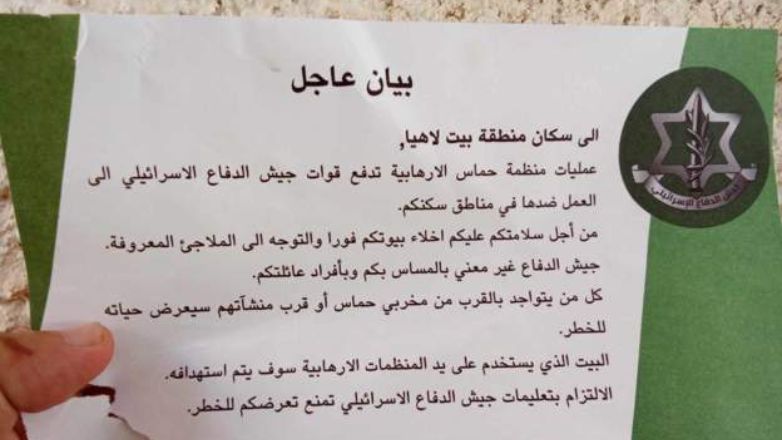 بيان عاجل
الى سكان منطقة بيت لاهيا,
عمليات منظمة حماس الارهابية تدفع قوات جيش الدفاع الاسرائيلي الى
العمل ضدها في مناطق سكنكم.
من أجل سلامتكم عليكم اخلاء بيوتكم فورا والتوجه الى الملاجئ المعروفة.
جيش الدفاع غير معني بالمساس بكم وبأفراد عائلتكم.
كل من يتواجد بالقرب من مخربي حماس أو قرب منشآتهم سيعرض حياته
للخطر.
البيت الذي يستخدم على يد المنظمات الارهابية سوف يتم استهدافه.
الالتزام بتعليمات جيش الدفاع الاسرائيلي تمنع تعرضكم للخطر.
جيش الدفاع الإسرائيلي